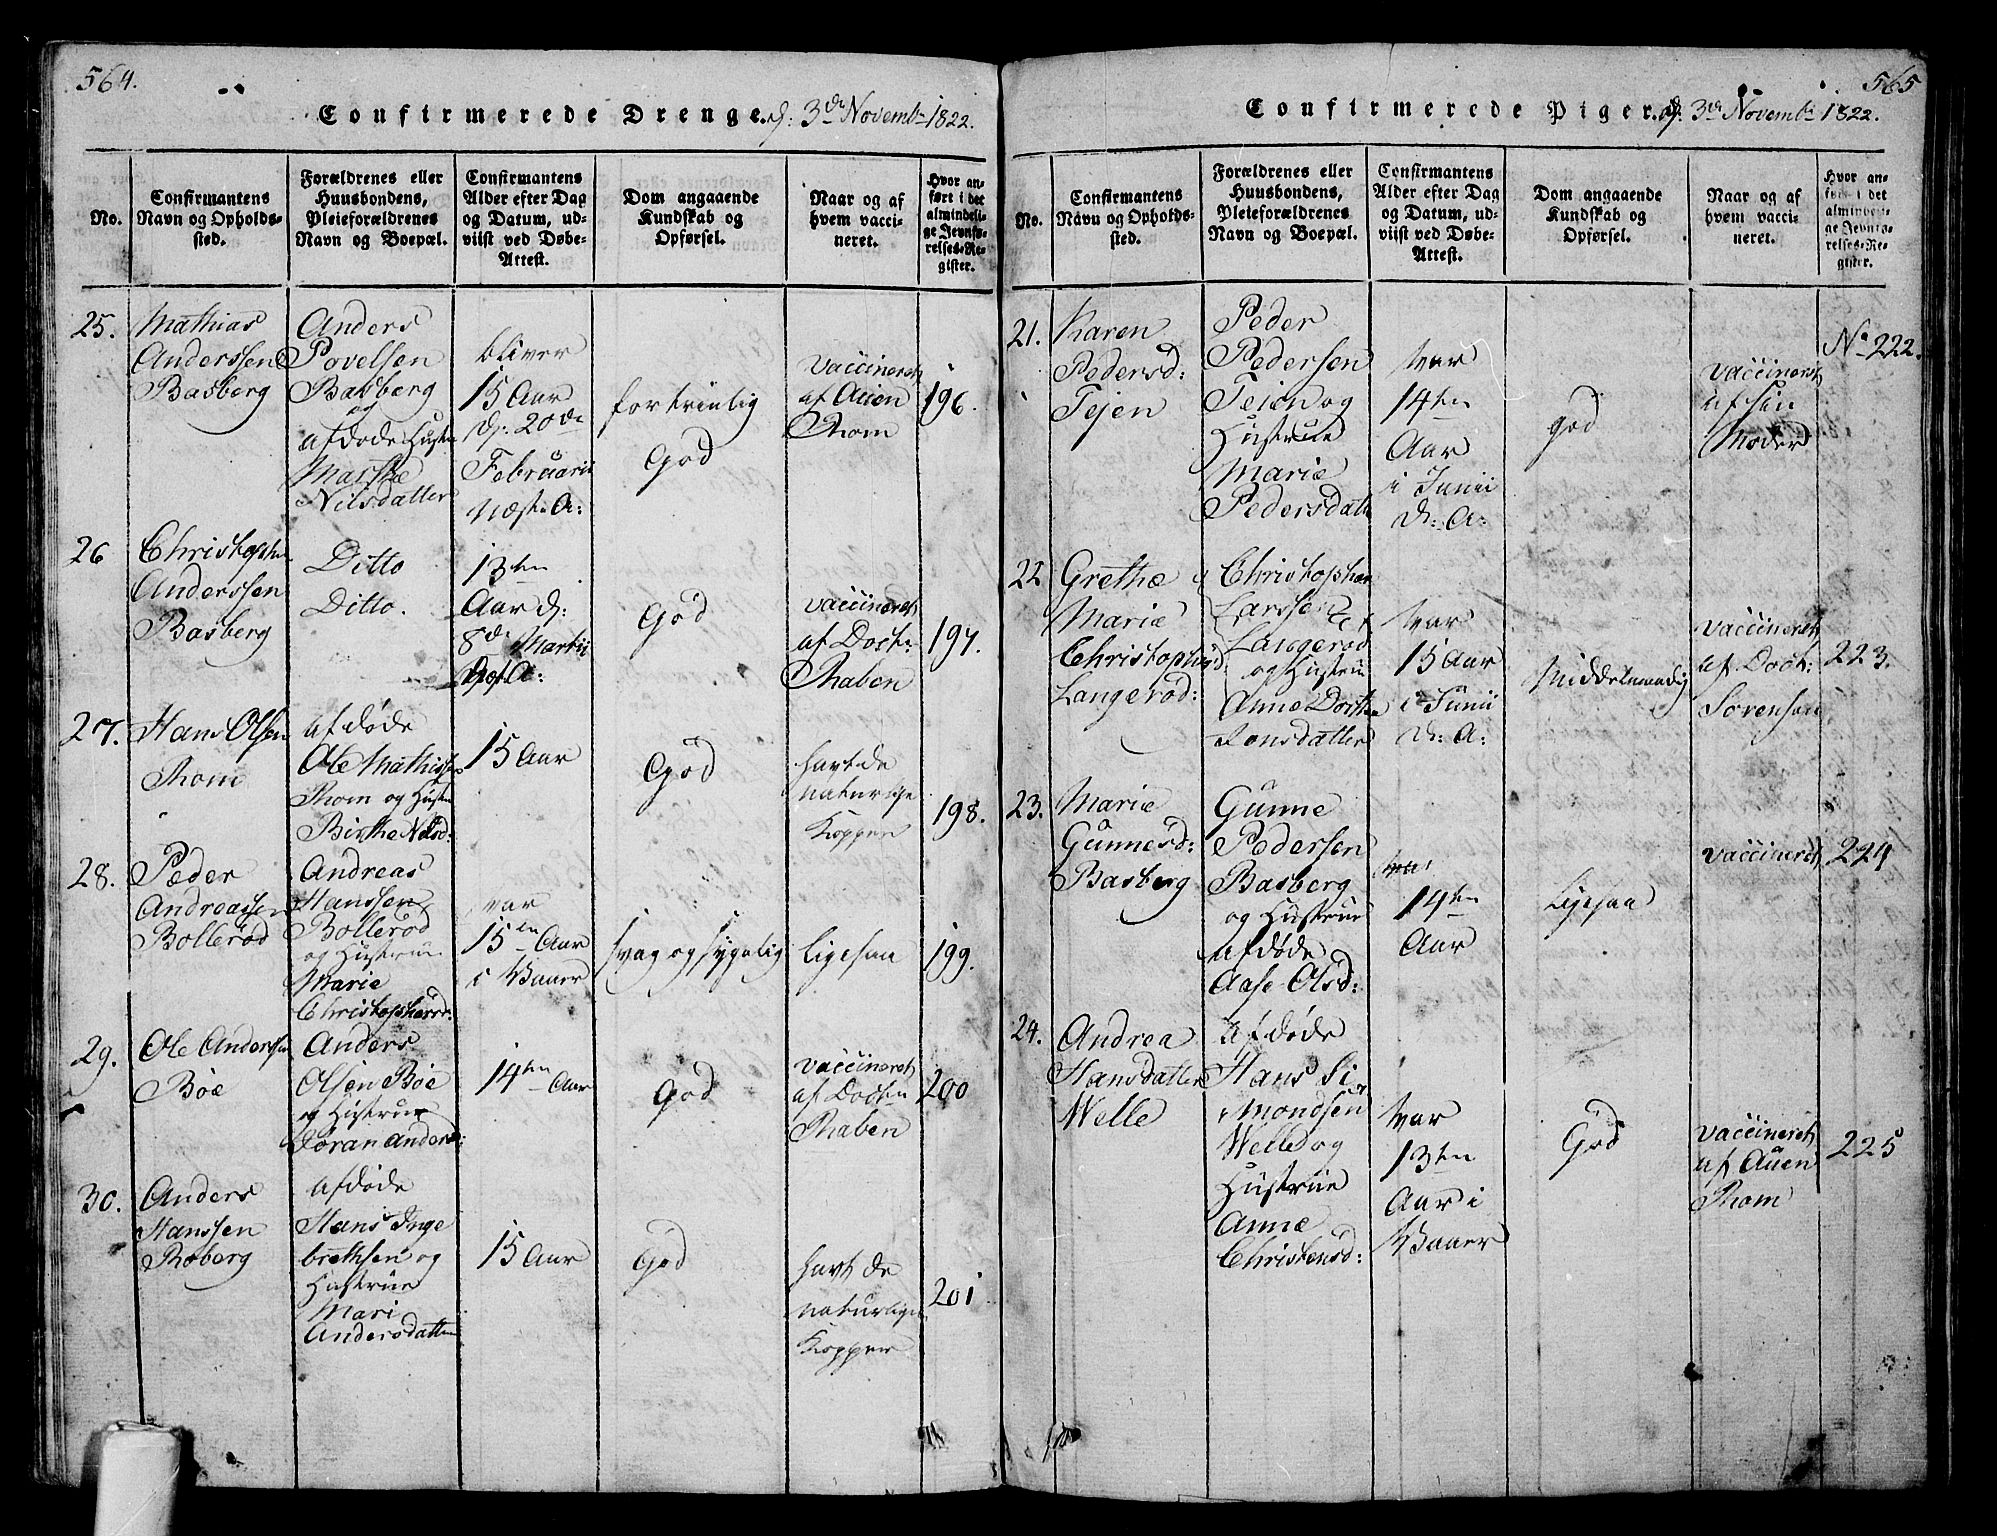 564.
Confirmerede Drenge. d: 3de Novembr 1822.
No.
Confirmantens
Navn og Opholds-
sted.
Forældrenes eller
Huusbondens,
Pleieforældrenes
Navn og Boepæl.
Confirmantens
Alder efter Dag
og Datum, ud-
viist ved Døbe-
Attest.
Dom angaaende
Kundskab og
Opførsel.
Naar og af
hvem vacci-
neret.
Hvor an-
ført i det
almindeli-
ge Jevnfø-
relses-Re-
gister.
25.
Mathias
Anderssen
Basberg
Anders
Povelsen
Basberg
og
afdøde Hustr
Marthe
Nilsdatter
bliver
15 Aar
d: 20de
Februarii
næst. A:
fortrinlig
God
vaccineret
af Auen
Rhom
196.
26
Christopher
Anderssen
Basberg
Ditto
Ditto.
13ten
Aar d:
8de Martii
A:
God
vaccineret
af Doctr
Rhaben
197.
27.
Hans Olsen
Rhom
afdøde
Ole Mathissen
Rhom og Hustr
Birthe Nilsd:
15 Aar
God
havt de
naturlige
Kopper
198.
28.
Peder
Andreassen
Bollerød
Andreas
Hanssen
Bollerød
og Hustrue
Marie
Christophersd:
var
15en Aar
i Vaaer
svag og sygelig
ligesaa
199.
29.
Ole Anderssen
Böe
Anders
Olsen Böe
og Hustrue
Joran Andersd:
14ten Aar
God
vaccineret
af Doctr
Rhaben
200
30.
Anders
Hanssen
Roberg
afdøde
Hans Inge
brethsen og
Hustrue
Mari
Andersdatter
15 Aar
God
havt de
naturlige
Kopper
201
565
Confirmerede Piger. d: 3de Novembr 1822.
No.
Confirmantens
Navn og Opholds-
sted.
Forældrenes eller
Huusbondens,
Pleieforældrenes
Navn og Boepæl.
Confirmantens
Alder efter Dag
og Datum, ud-
viist ved Døbe-
Attest.
Dom angaaende
Kundskab og
Opførsel.
Naar og af
hvem vacci-
neret.
Hvor an-
ført i det
almindeli-
ge Jevnfø-
relses-Re-
gister.
21.
Karen
Pedersd:
Tejen
Peder
Pedersen
Teien og
Hustrue
Marie
Pedersdatt
var
14ten
Aar
i Junii
d: A:
god
vaccineret
af sin
Moder
No 222.
22
Grethe
Marie
Christophersd:
Langerød:
Christopher
Larssen
Langerød
og Hustrue
Anne Dorthe
Jonsdatter
var
15 Aar
i Junii
d: A:
Middelmaadig
vaccineret
af Doct:
Sörensen
223.
23.
Marie
Gunnesd:
Basberg
Gunne
Pedersen
Basberg
og Hustrue
afdøde
Aase Olsd:
var
14ten
Aar
Ligesaa
vaccineret
224
24.
Andrea
Hansdatter
Welle
afdøde
Hans Si
mondsen
Welle og
Hustrue
Anne
Christensd:
var
13ten
Aar i
Vaaer
God
vaccineret
af Auen
Rhom
225